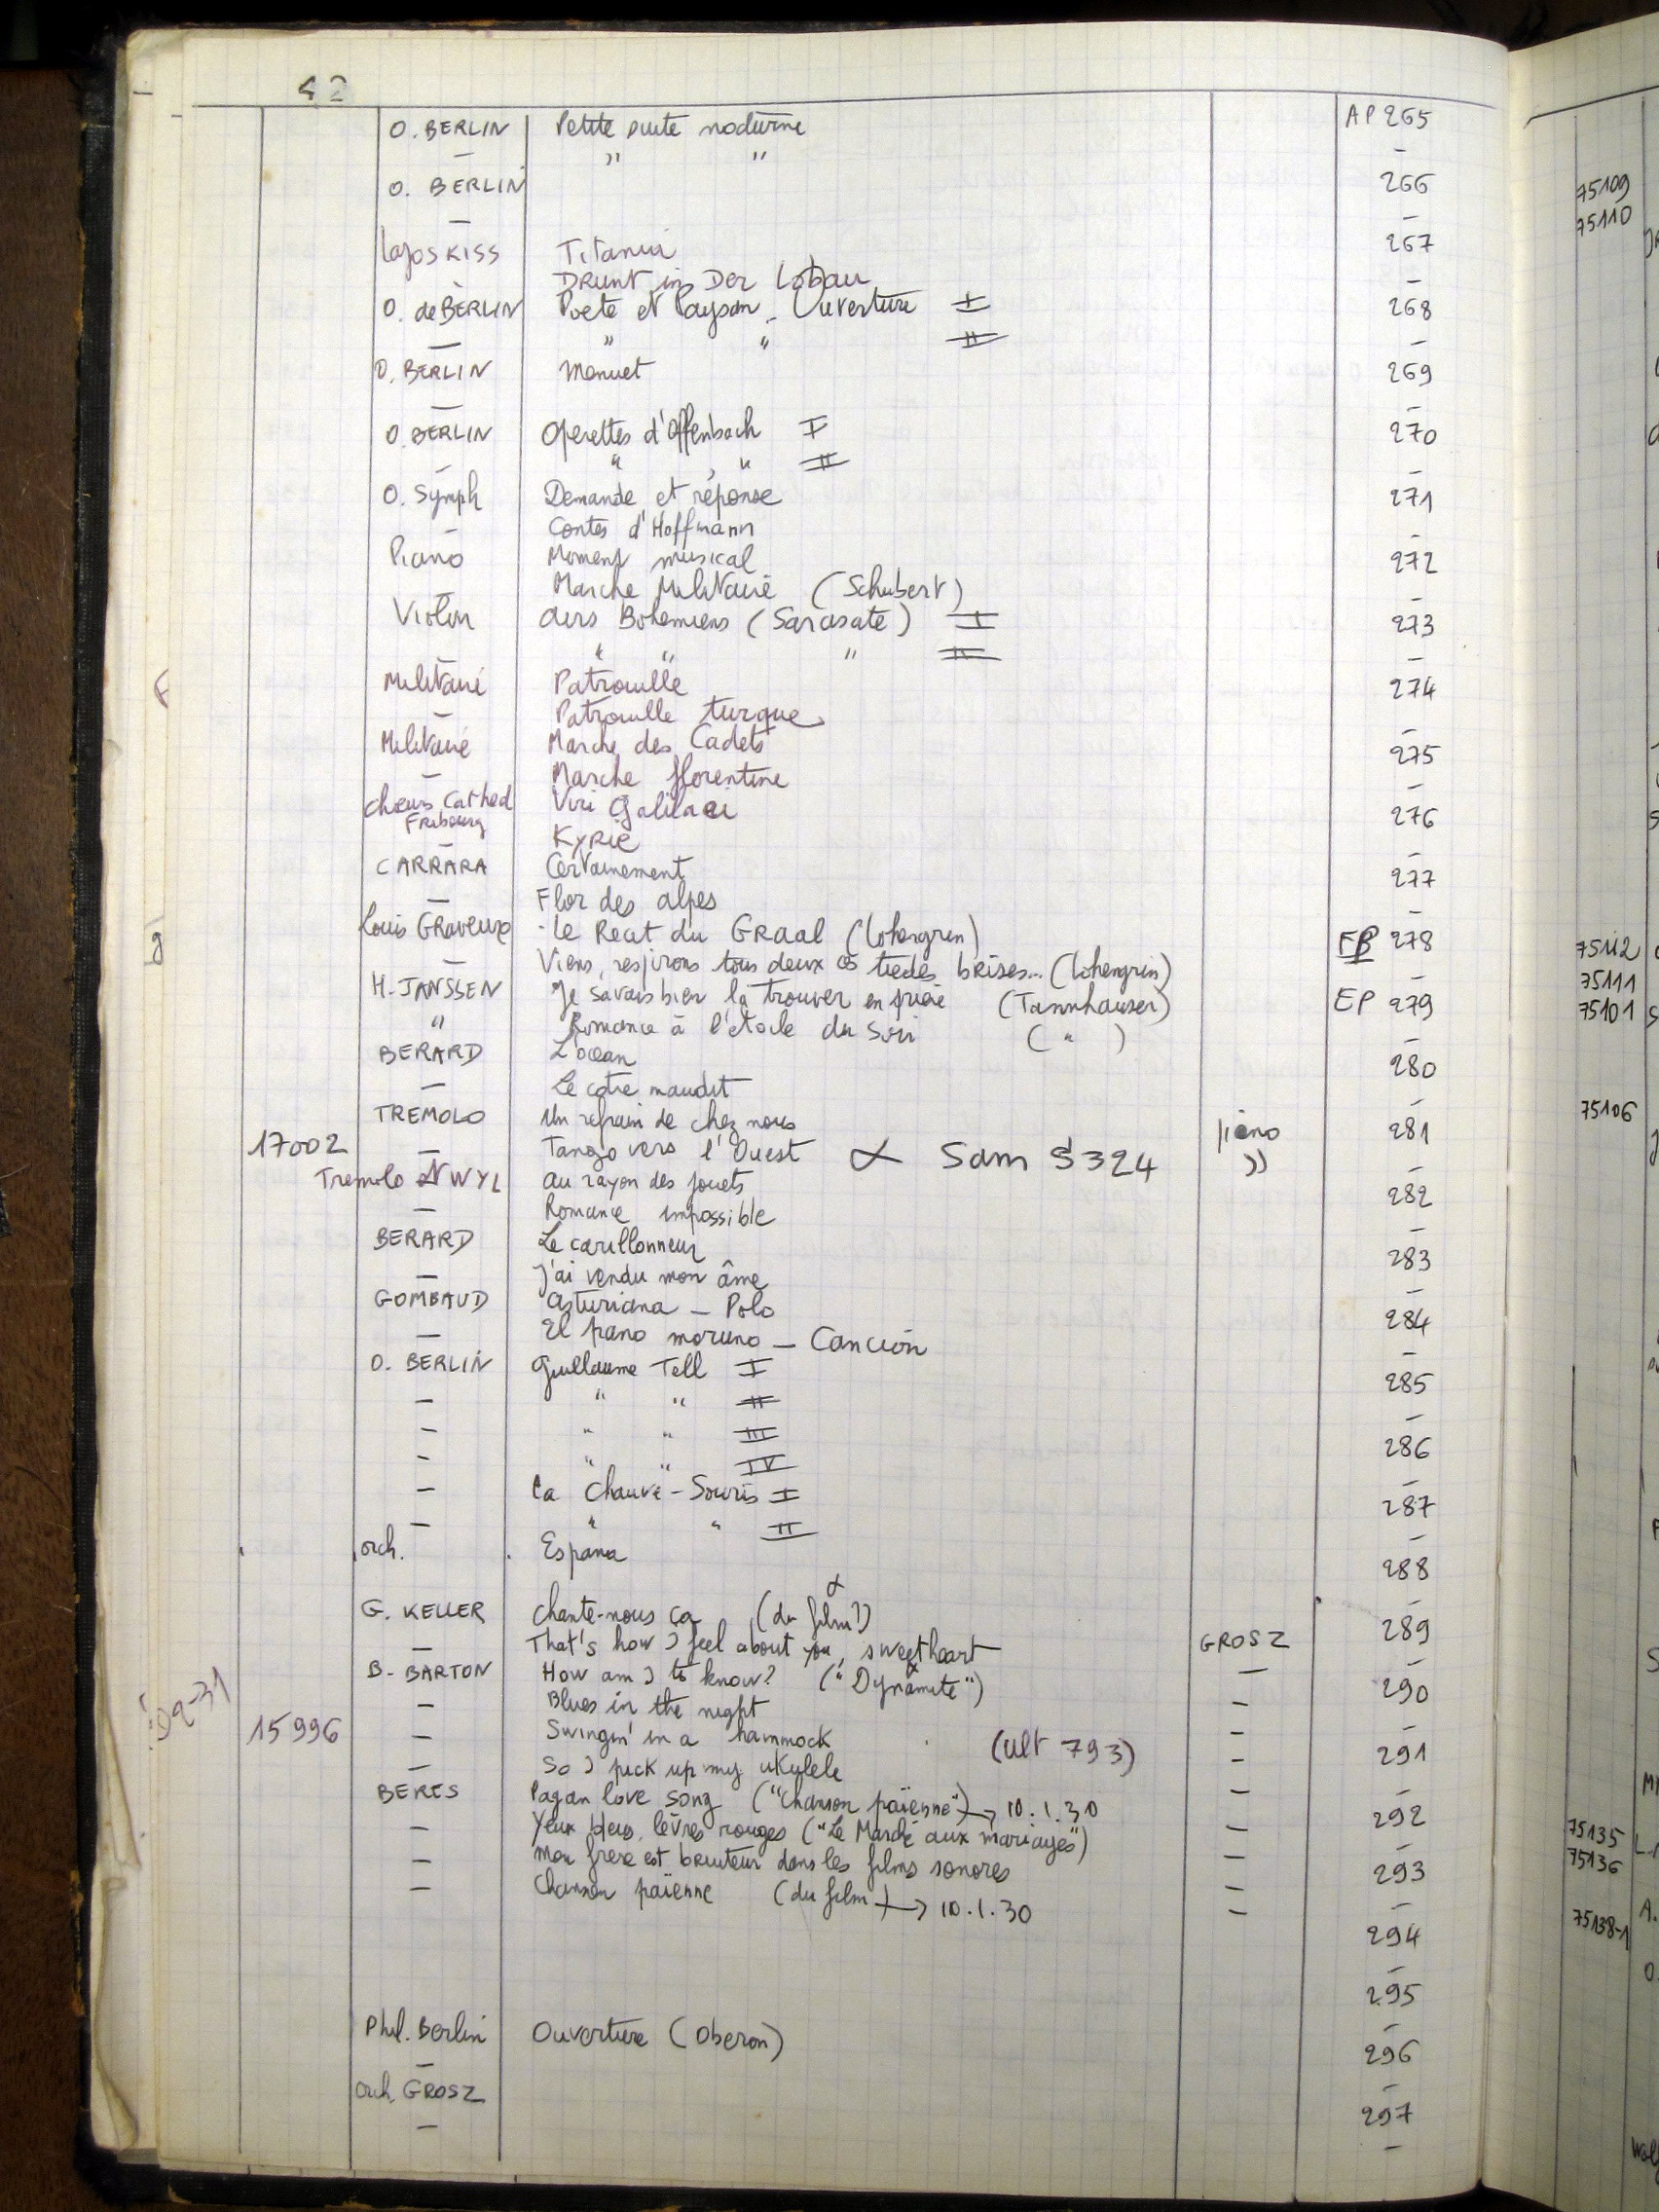 42
O. BERLIN Petite suite nocturne AP 265
— " " –
O. BERLIN 266
— –
Lajos KISS Titania 267
DRUNT in Der Lobau –
O. de BERLIN Poete et Paysan – Ouverture I 268
— " " II –
O. BERLIN Menuet 269
— –
O. BERLIN Operettes d'Offenbach I 270
– " " II –
O. Symph Demande et réponse 271
– Contes d'Hoffmann –
Piano Moment musical 272
– Marche Militaire (Schubert) –
Violon Airs Bohemiens (Sarasate) I 273
– " " " II –
Militaire Patrouille 274
– Patrouille turque –
Militaire Marche des Cadets 275
– Marche florentine –
Chœurs Cathed Viri Galilaei 276
Fribourg
– Kyrie –
CARRARA Certainement 277
– Flor des alpes –
Louis Graveure Le Recit du GRAAL (Lohengrin) EP 278
– Viens, respirons tous deux ces tiedes brises... (Lohengrin) –
H. JANSSEN Je savais bien la trouver en prière (Tannhauser) EP 279
" Romance à l'étoile du soir ( " ) –
BERARD L'ocean 280
– Le cotre maudit –
TREMOLO Un refrain de chez nous piano 281
17002 – Tango vers l'Ouest α Sam S324 )) –
Tremolo et WYL au rayon des jouets 282
– Romance impossible –
BERARD Le carillonneur 283
– J'ai vendu mon âme –
GOMBAUD Asturiana – Polo 284
– El pano moruno – Canción –
O. BERLIN Guillaume Tell I 285
– " " II –
– " " III 286
– " " IV –
– La Chauve-Souris I 287
– " " II –
orch. Espana 288
–
G. KELLER Chante-nous ça (du film?) α 289
– That's how I feel about you, sweetheart GROSZ –
B. BARTON How am I to know? ("Dynamite") — 290
– Blues in the night – –
15996 – Swingin' in a hammock (Ult 793) – 291
– So I pick up my ukulele – –
BERES Pagan love song ("Chanson païenne") → 10.1.30 – 292
– Yeux bleus, lèvres rouges ("Le Marché aux mariages") – –
– Mon frere est bruiteur dans les films sonores – 293
– Chanson païenne (du film) → 10.1.30 – –
294
–
295
–
Phil. Berlin Ouverture (Oberon) 296
– –
orch. GROSZ 297
– –
75109
75110
75112
75111
75101
75106
75135
75136
75138-1